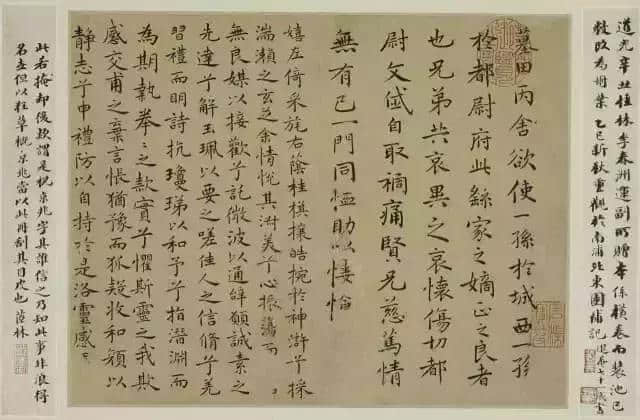 道光辛丑桂林李春洲運副所贈本係橫卷而裝池已
敝改為册葉 乙巳新秋重觀於南浦北東園補記 退庵七十一歲書
墓田丙舍欲使一孫於城西一孫
於都尉府此繇家之嫡正之良者
也兄弟共哀異之哀懷傷切都
尉文岱自取禍痛賢兄慈篤情
無有已一門同恤助以悽愴
嬉左倚采旄右蔭桂棋攘皓捥於神滸兮採
湍瀨之玄芝余情悅其淑美兮心振蕩而
無良媒以接歡兮託微波以通辭願誠素之
先達兮解玉珮以要之嗟佳人之信脩兮羌
習禮而明詩抗瓊珶以和予兮指潛淵而
為期執拳〻之款實兮懼斯靈之我欺
感交甫之棄言悵猶豫而狐疑收和顏以
靜志兮申禮防以自持於是洛靈感〻
此若掩却後款謂是祝京兆字其誰信之乃知此事非浪得
名立但以粗草概京兆當以此册刮其目也 茝林